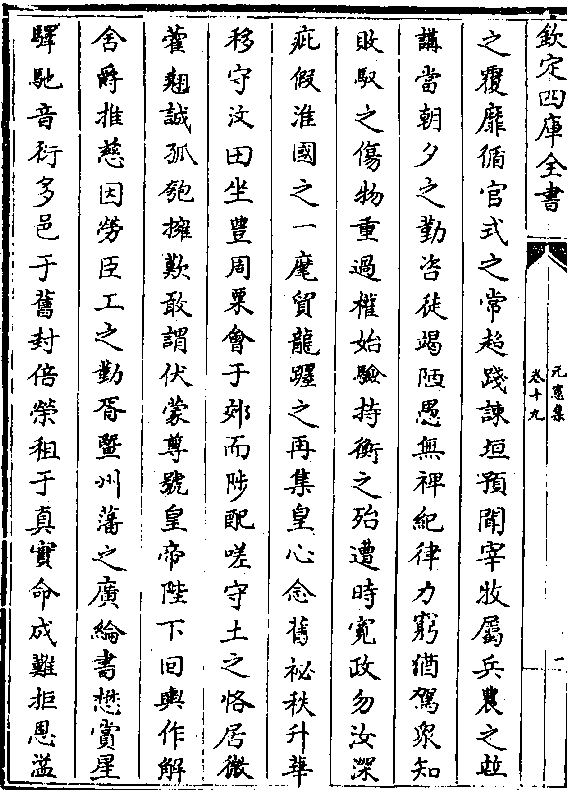 欽定四庫全書
元憲集
卷十九
一
之覆靡循官式之常超踐諫垣預聞宰牧屬兵農之並
講當朝夕之勤咨徒竭陋愚無裨紀律力窮猶駕衆知
敗馭之傷物重過權始驗持衡之殆遭時寛政勿汝深
疵假淮國之一麾貿龍躔之再集皇心念舊祕秩升華
移守汶田坐豐周粟會于郊而陟配嗟守土之恪居微
藿翹誠孤匏擁歎敢謂伏蒙尊號皇帝陛下囘輿作解
舍爵推慈因勞臣工之勤胥暨州藩之廣綸書懋賞星
驛馳音衍多邑于舊封倍榮租于真實命成難拒恩滥